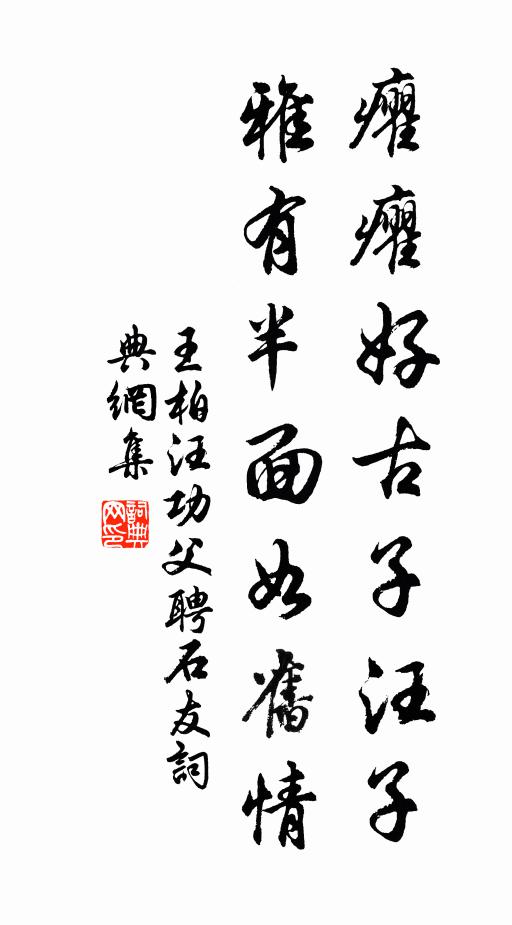 癯癯好古子汪子
雅有半面如舊情
王柏汪功父聘石友詞
典網集
詞典網印